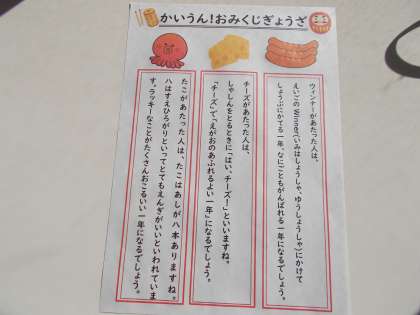 かいうん!おみくじぎょうざ
ウィンナーがあたった人は、
えいごのWinner(いみはしょうしゃ、ゆうしょうしゃ)にかけて
しょうぶにかてる一年。なにごともがんばれる一年になるでしょう。
チーズがあたった人は、
しゃしんをとるときに「はい、チーズ!」といいますね。
「チーズ」で、「えがおのあふれるよい一年」になるでしょう。
たこがあたった人は、たこはあしが八本ありますね。
八はすえひろがりといってとてもえんぎがいいといわれていま
す。ラッキーなことがたくさんおこるいい一年になるでしょう。